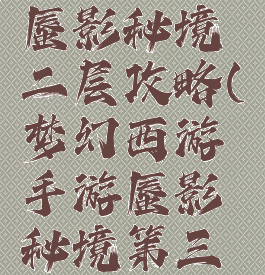 蜃影秘境
二层攻略(
梦幻西游
手游蜃影
秘境第三